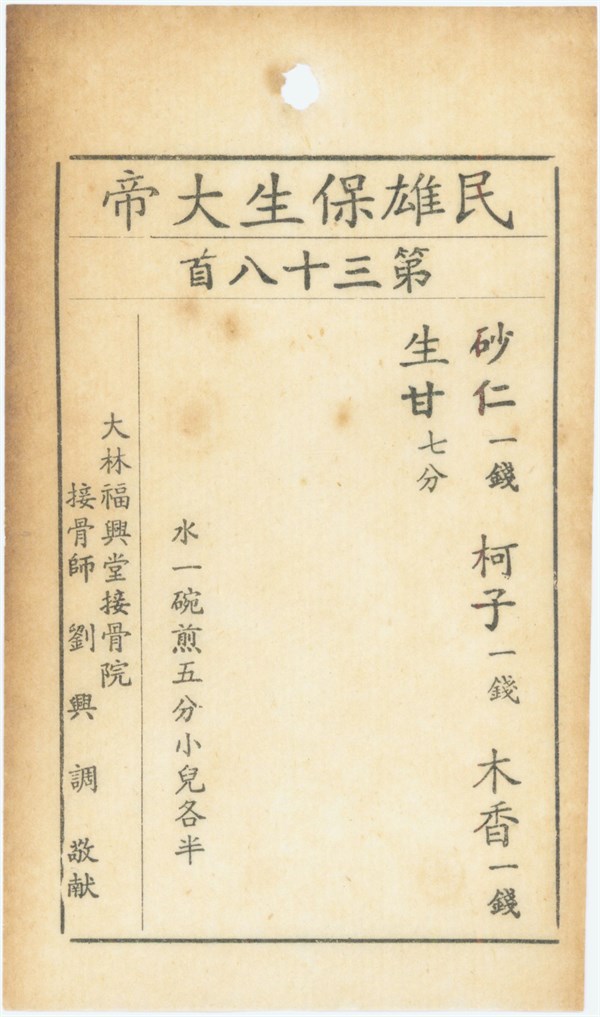 民雄保生大帝
第三十八首
砂仁一錢 柯子一錢 木香一錢
生甘七分
水一碗煎五分小兒各半
大林福興堂接骨院
接骨師 劉興調 敬献